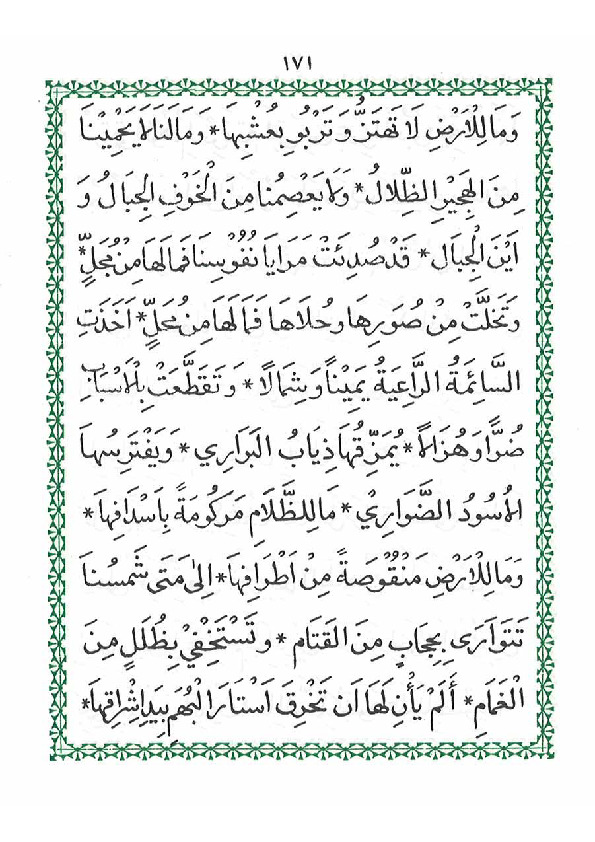 ١٧١
وَمَا لِلْاَرْضِ لَا تَهْتَزُّ وَتَرْبُو بِعُشْبِهَا * وَمَالَنَا لَمْ يَحْمِيْنَا
مِنَ الْهَجِيْرِ الظِّلَالُ * وَلَمْ يَعْصِمُنَا مِنَ الْخَوْفِ الْجِبَالُ وَ
اَيْنَ الْجِبَال * قَدْ صُدِئَتْ مَرَايَا نُفُوْسِنَا فَمَا لَهَا مِنْ مُجَلٍّ *
وَتَخَلَّتْ مِنْ صُوَرِهَا وحُلَاهَا فَمَا لَهَا مِنْ مُحَلٍّ * اَخَذَتِ
السَّائِمَةُ الرَّاعِيَةُ يَمِيْنًا وَشِمَالًا * وَتَقَطَّعَتْ بِالْاَسْبَابِ
ضُرًّا وَهُزَالًا * يُمَزِّقُهَا ذِيَابُ الْبَرَارِي * وَيَفْتَرِسُهَا
الْاُسُوْدُ الضَّوَارِيْ * مَا لِلظَّلَامِ مَرَكُومَةً بِاَسْدَافِهَا *
وَمَا لِلْاَرْضِ مَنْقُوْصَةً مِنْ اَطْرَافِهَا * اِلَى مَتَى شَمْسُنَا
تَتَوَارَى بِحِجَابٍ مِنَ الْقَتَام * وتَسْتَخْفِيْ بِظُلَلٍ مِنَ
الْغَمَامِ * أَلَمْ يَأْنِ لَهَا اَن تَخْرِقَ اَسْتَارَ الْبُهَمِ بِيَدِ اِشْرَاقِهَا *